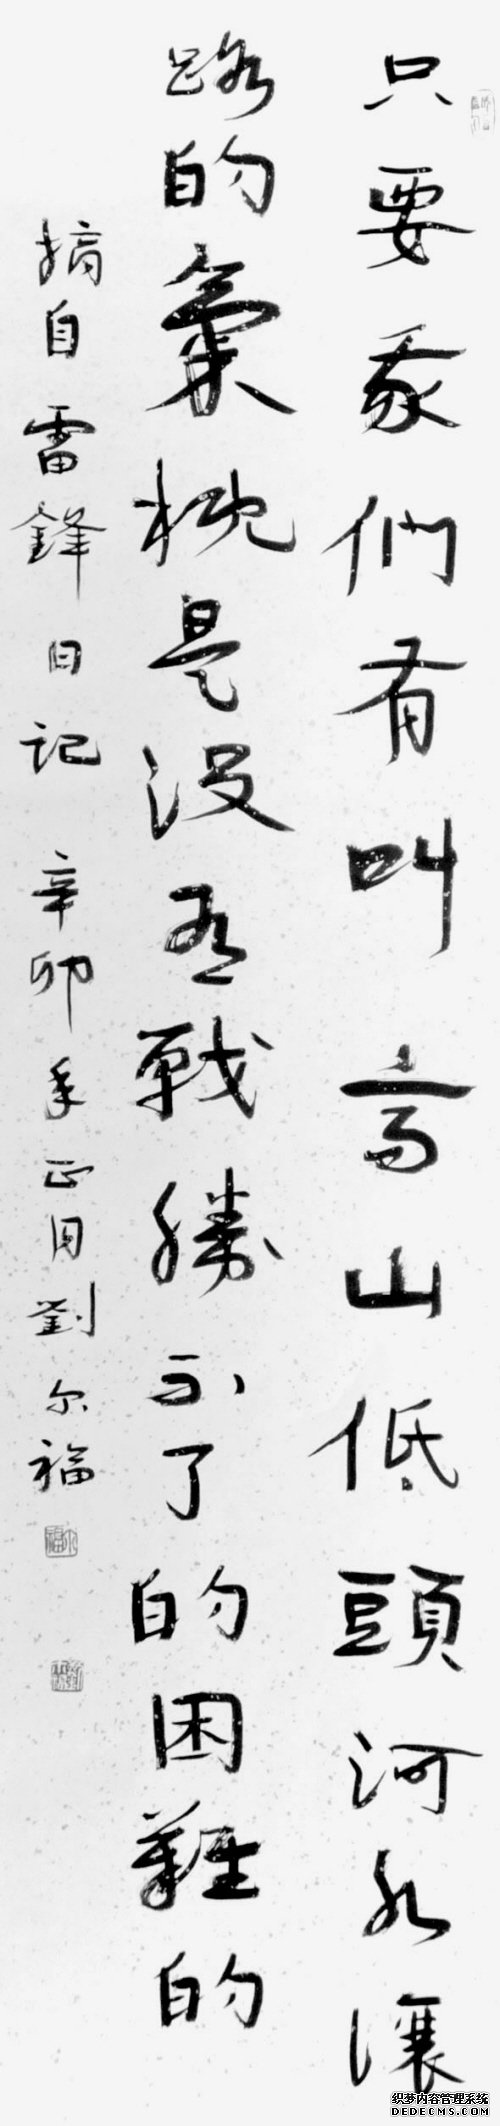 只要我們有叫高山低頭河水讓
路的氣概是沒有戰勝不了的困難的
摘自雷鋒日記 辛卯年正月劉尔福
织梦内容管理系统
DEDECMS.COM